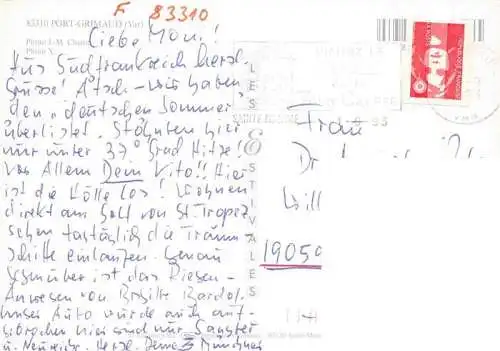 F 83310
83310 PORT-GRIMAUD (Var)
Liebe Moni!
Aus Südfrankreich herzl.
Grüsse! Ätsch - wir haben
den "deutschen Sommer"
überlistet. Stöhnten hier
nur unter 37° Grad Hitze!
Vor Allem Dem Vito!! Hier
ist die Hölle los! Wohnen
direkt am Golf von St. Tropez
sehen tagtäglich die Traum-
schiffe einlaufen. Genau
gegenüber ist das Riesen-
Anwesen von Brigitte Bardot.
Unser Auto wurde auch auf-
gebrochen hier sind nur Gangster
u. Neureiche. Herzl. Deine 3 Münchner
LES ESTIVALES
Frau
Dr.
Will
19050